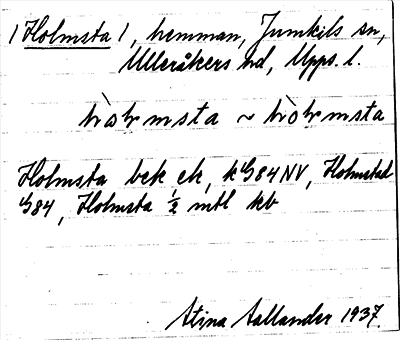 /Holmsta/, hemman, Jumkils sn,
Ulleråkers hd, Upps. l.
Holmsta bek ek, k G84NV, Holmstad
G84, Holmsta ½ mtl kb
Stina Aallander 1937.